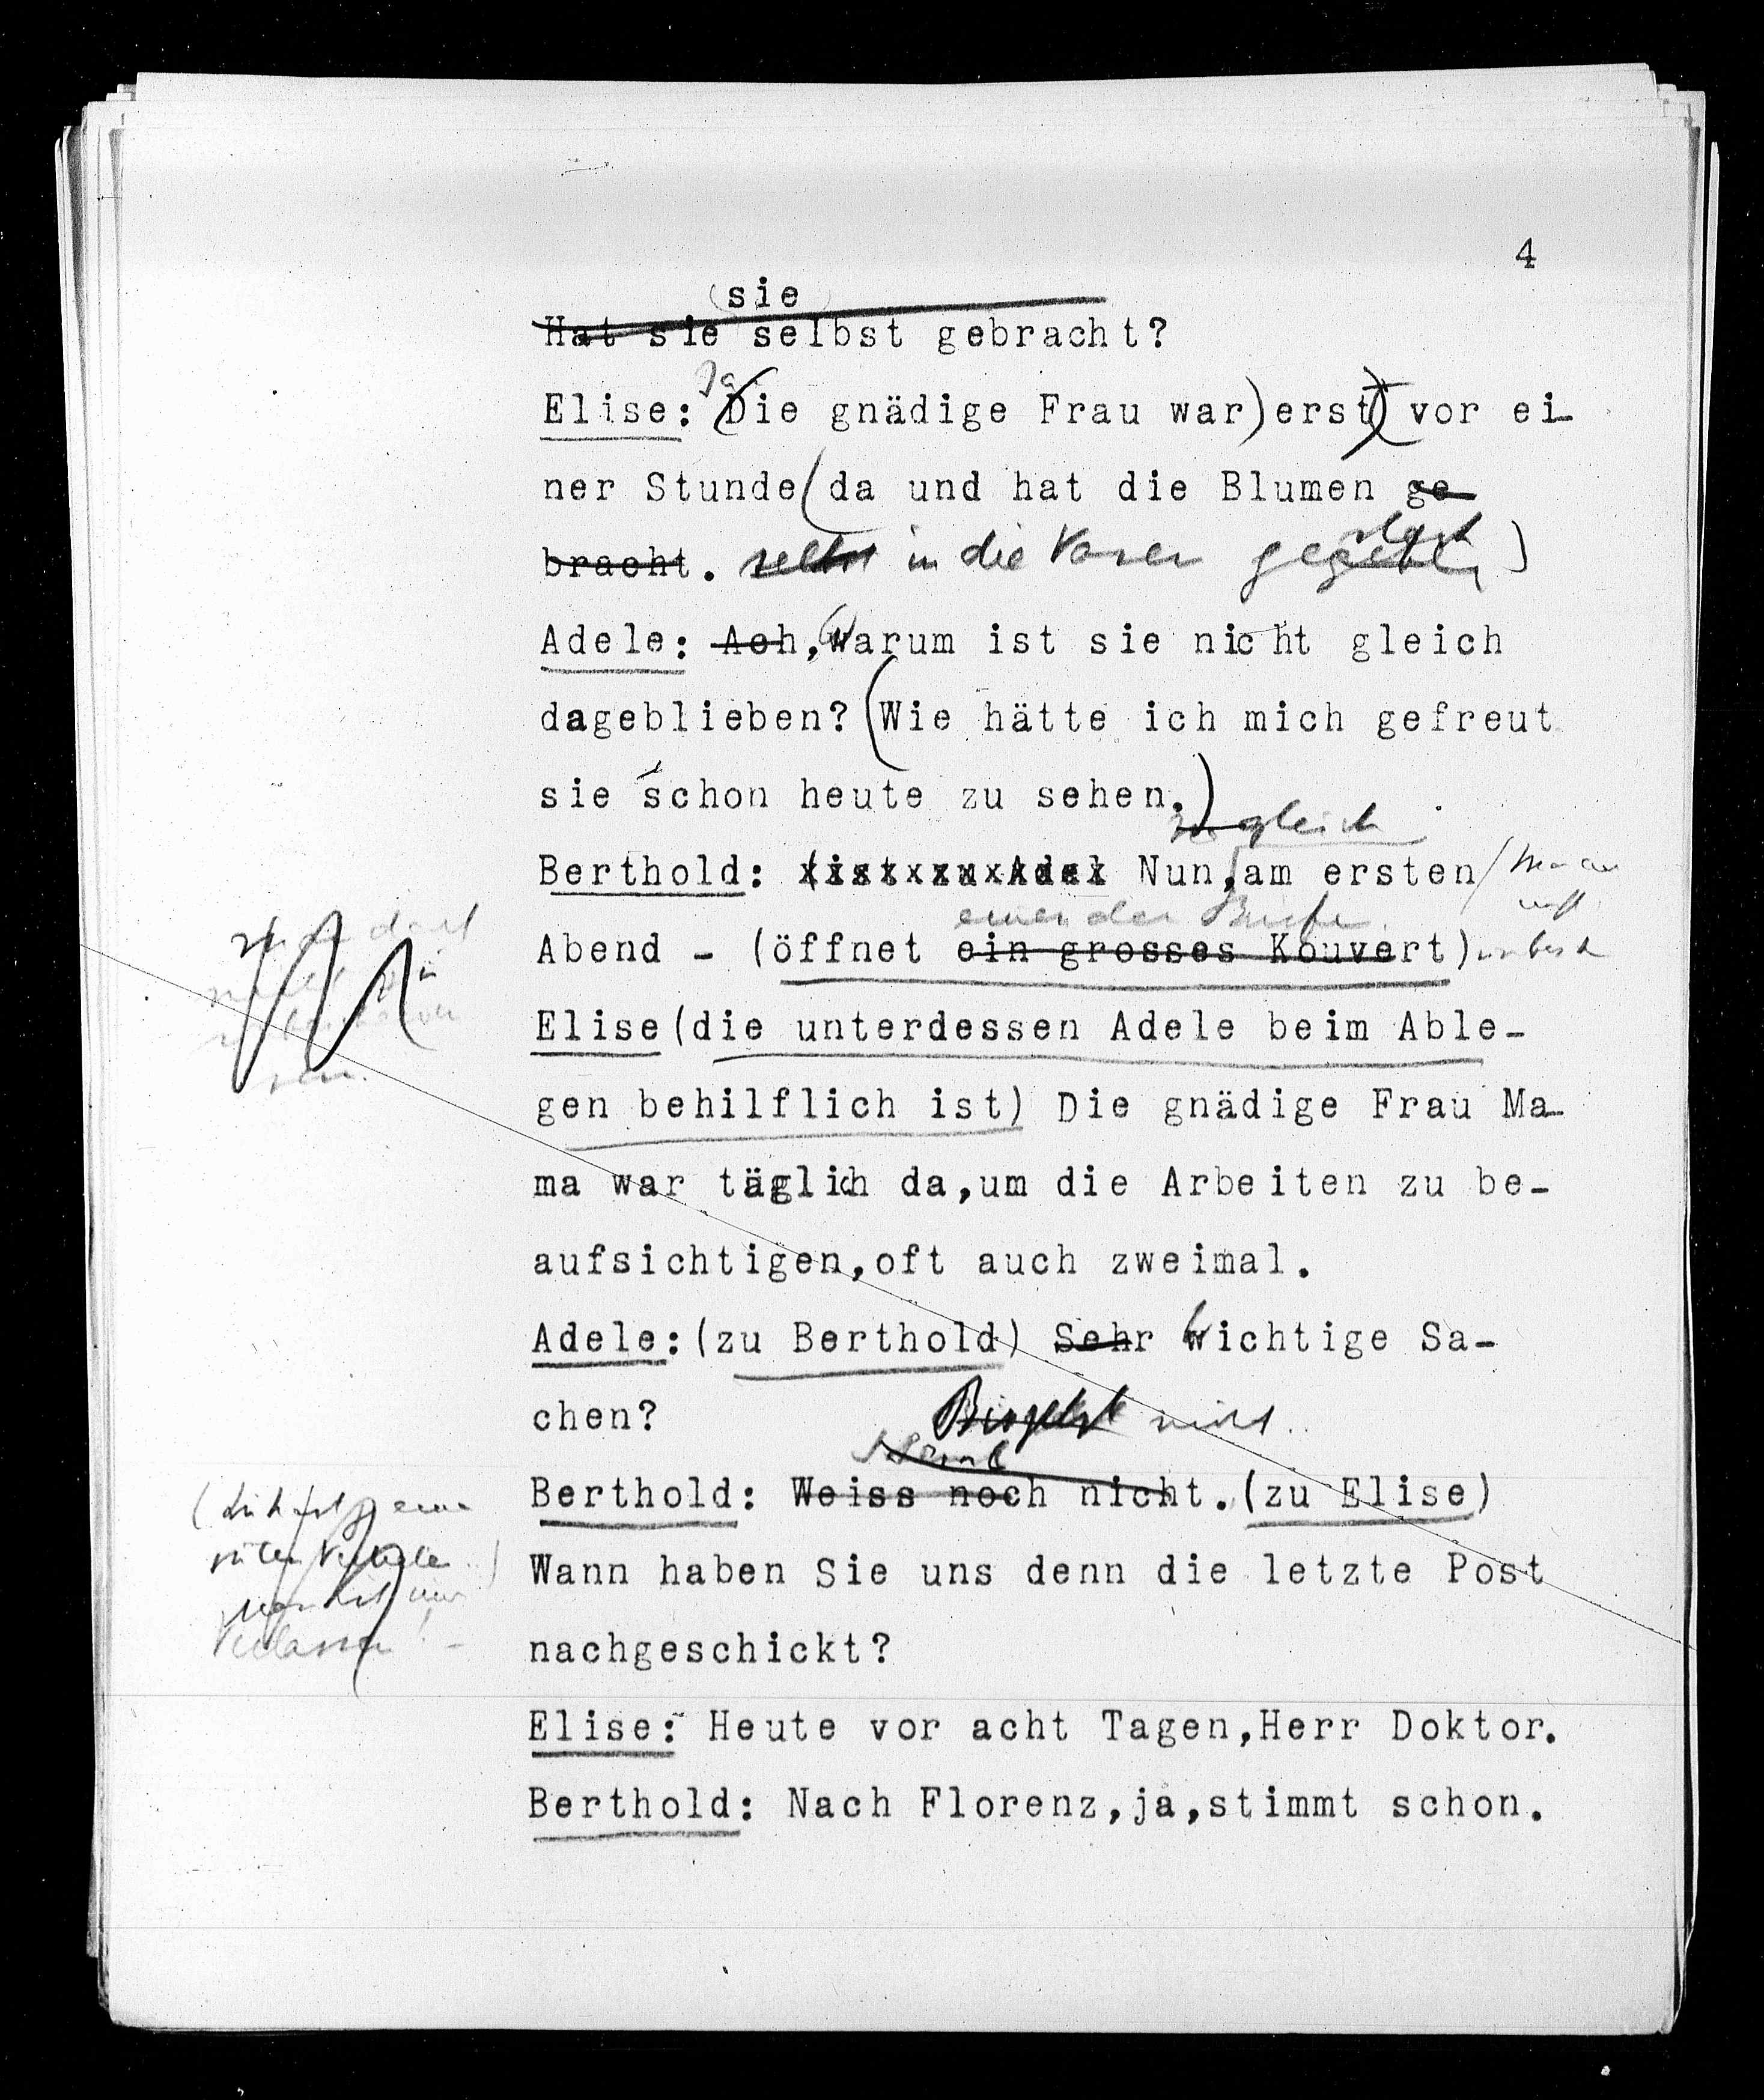 4
sie
Hat sie selbst gebracht?
Ja
Elise: (Die gnädige Frau war) erst) vor ei-
ner Stunde (da und hat die Blumen ge-
bracht. selbst in die Vasen )
Adele: Ach, Warum ist sie nicht gleich
dageblieben? (Wie hätte ich mich gefreut
sie schon heute zu sehen.)
gleich
Berthold: (istxzuxAdel Nun, am ersten
einen der Briefe
Abend - (öffnet ein grosses Kouvert)
Elise (die unterdessen Adele beim Able-
gen behilflich ist) Die gnädige Frau Ma-
ma war täglich da, um die Arbeiten zu be-
aufsichtigen, oft auch zweimal.
Adele: (zu Berthold) Sehr Wichtige Sa-
chen?
nicht..
Berthold: Weiss noch nicht. (zu Elise)
Wann haben Sie uns denn die letzte Post
nachgeschickt?
Elise: Heute vor acht Tagen, Herr Doktor.
Berthold: Nach Florenz, ja, stimmt schon.